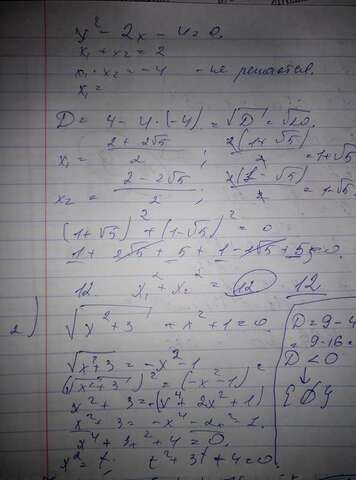 x² - 2x - 4 = 0.
x₁ + x₂ = 2
x₁ · x₂ = -4 - не решается.
x₁ =
D = 4 - 4 · (-4) = √D = √20.
x₁ = (2 + 2√5)/2 ; 2(1 + √5)/2 = 1+√5
x₂ = (2 - 2√5)/2 ; 2(1 - √5)/2 = 1-√5
(1+√5)² + (1-√5)² = 0
1 + 2√5 + 5 + 1 - 2√5 + 5 = 0.
12 x₁² + x₂² = 12 12
2) √(x² + 3) + x² + 1 = 0
√(x² + 3) = -x² - 1
(√(x² + 3))² = (-x² - 1)²
x² + 3 = -(x⁴ + 2x² + 1)
x² + 3 = -x⁴ - 2x² - 1.
x⁴ + 3x² + 4 = 0.
x² = t; t² + 3t + 4 = 0.
D = 9 - 4
= 9 - 16 =
D < 0
↓
{∅}